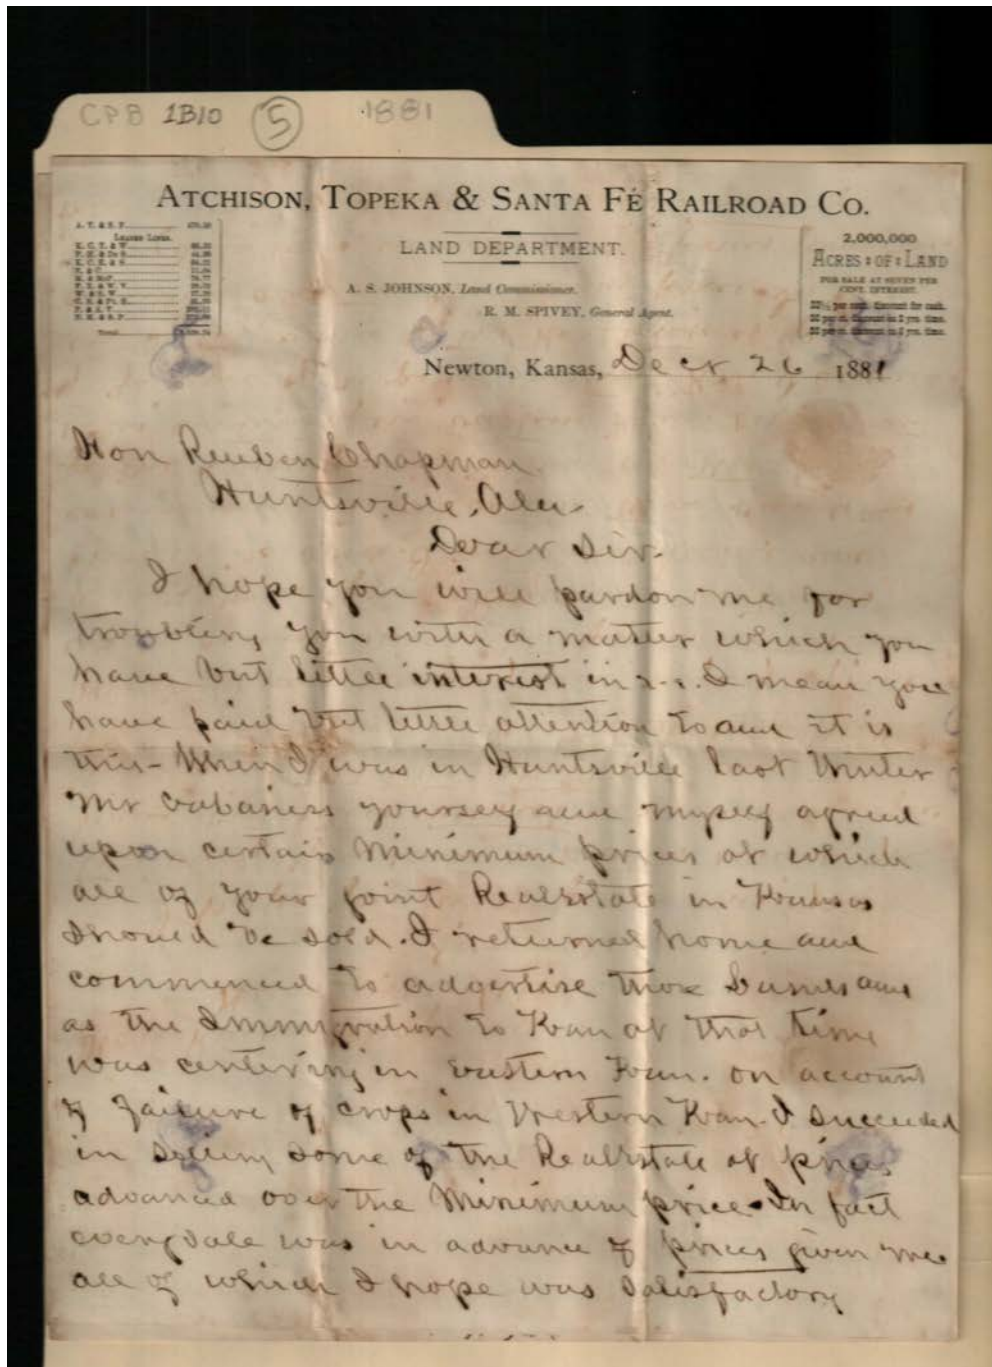 CPB 1B10 5 1881
ATCHISON, TOPEKA & SANTA FÉ RAILROAD CO.
LAND DEPARTMENT.
A. S. JOHNSON, Land Commissioner.
R. M. SPIVEY, General Agent.
2,000,000
ACRES OF LAND
FOR SALE AT SEVEN PER
CENT. INTEREST.
Newton, Kansas, Decr 26 1881
Hon Reuben Chapman
Huntsville, Ala
Dear Sir.
I hope you will pardon me for
troubling you with a matter which you
have but little interest in. I mean you
have paid but little attention to and it is
this - When I was in Huntsville last Winter
Mr Cabaniss yourself and myself agreed
upon certain Minimum prices at which
all of your joint Realestate in Kansas
should be sold. I returned home and
commenced to advertise those Lands and
as the Immigration to Kan at that time
was centering in Eastern Kan. on account
of failure of crops in Western Kan. I succeeded
in selling some of the Realestate at prices
advanced over the Minimum price. In fact
every sale was in advance of prices given me
all of which I hope was satisfactory